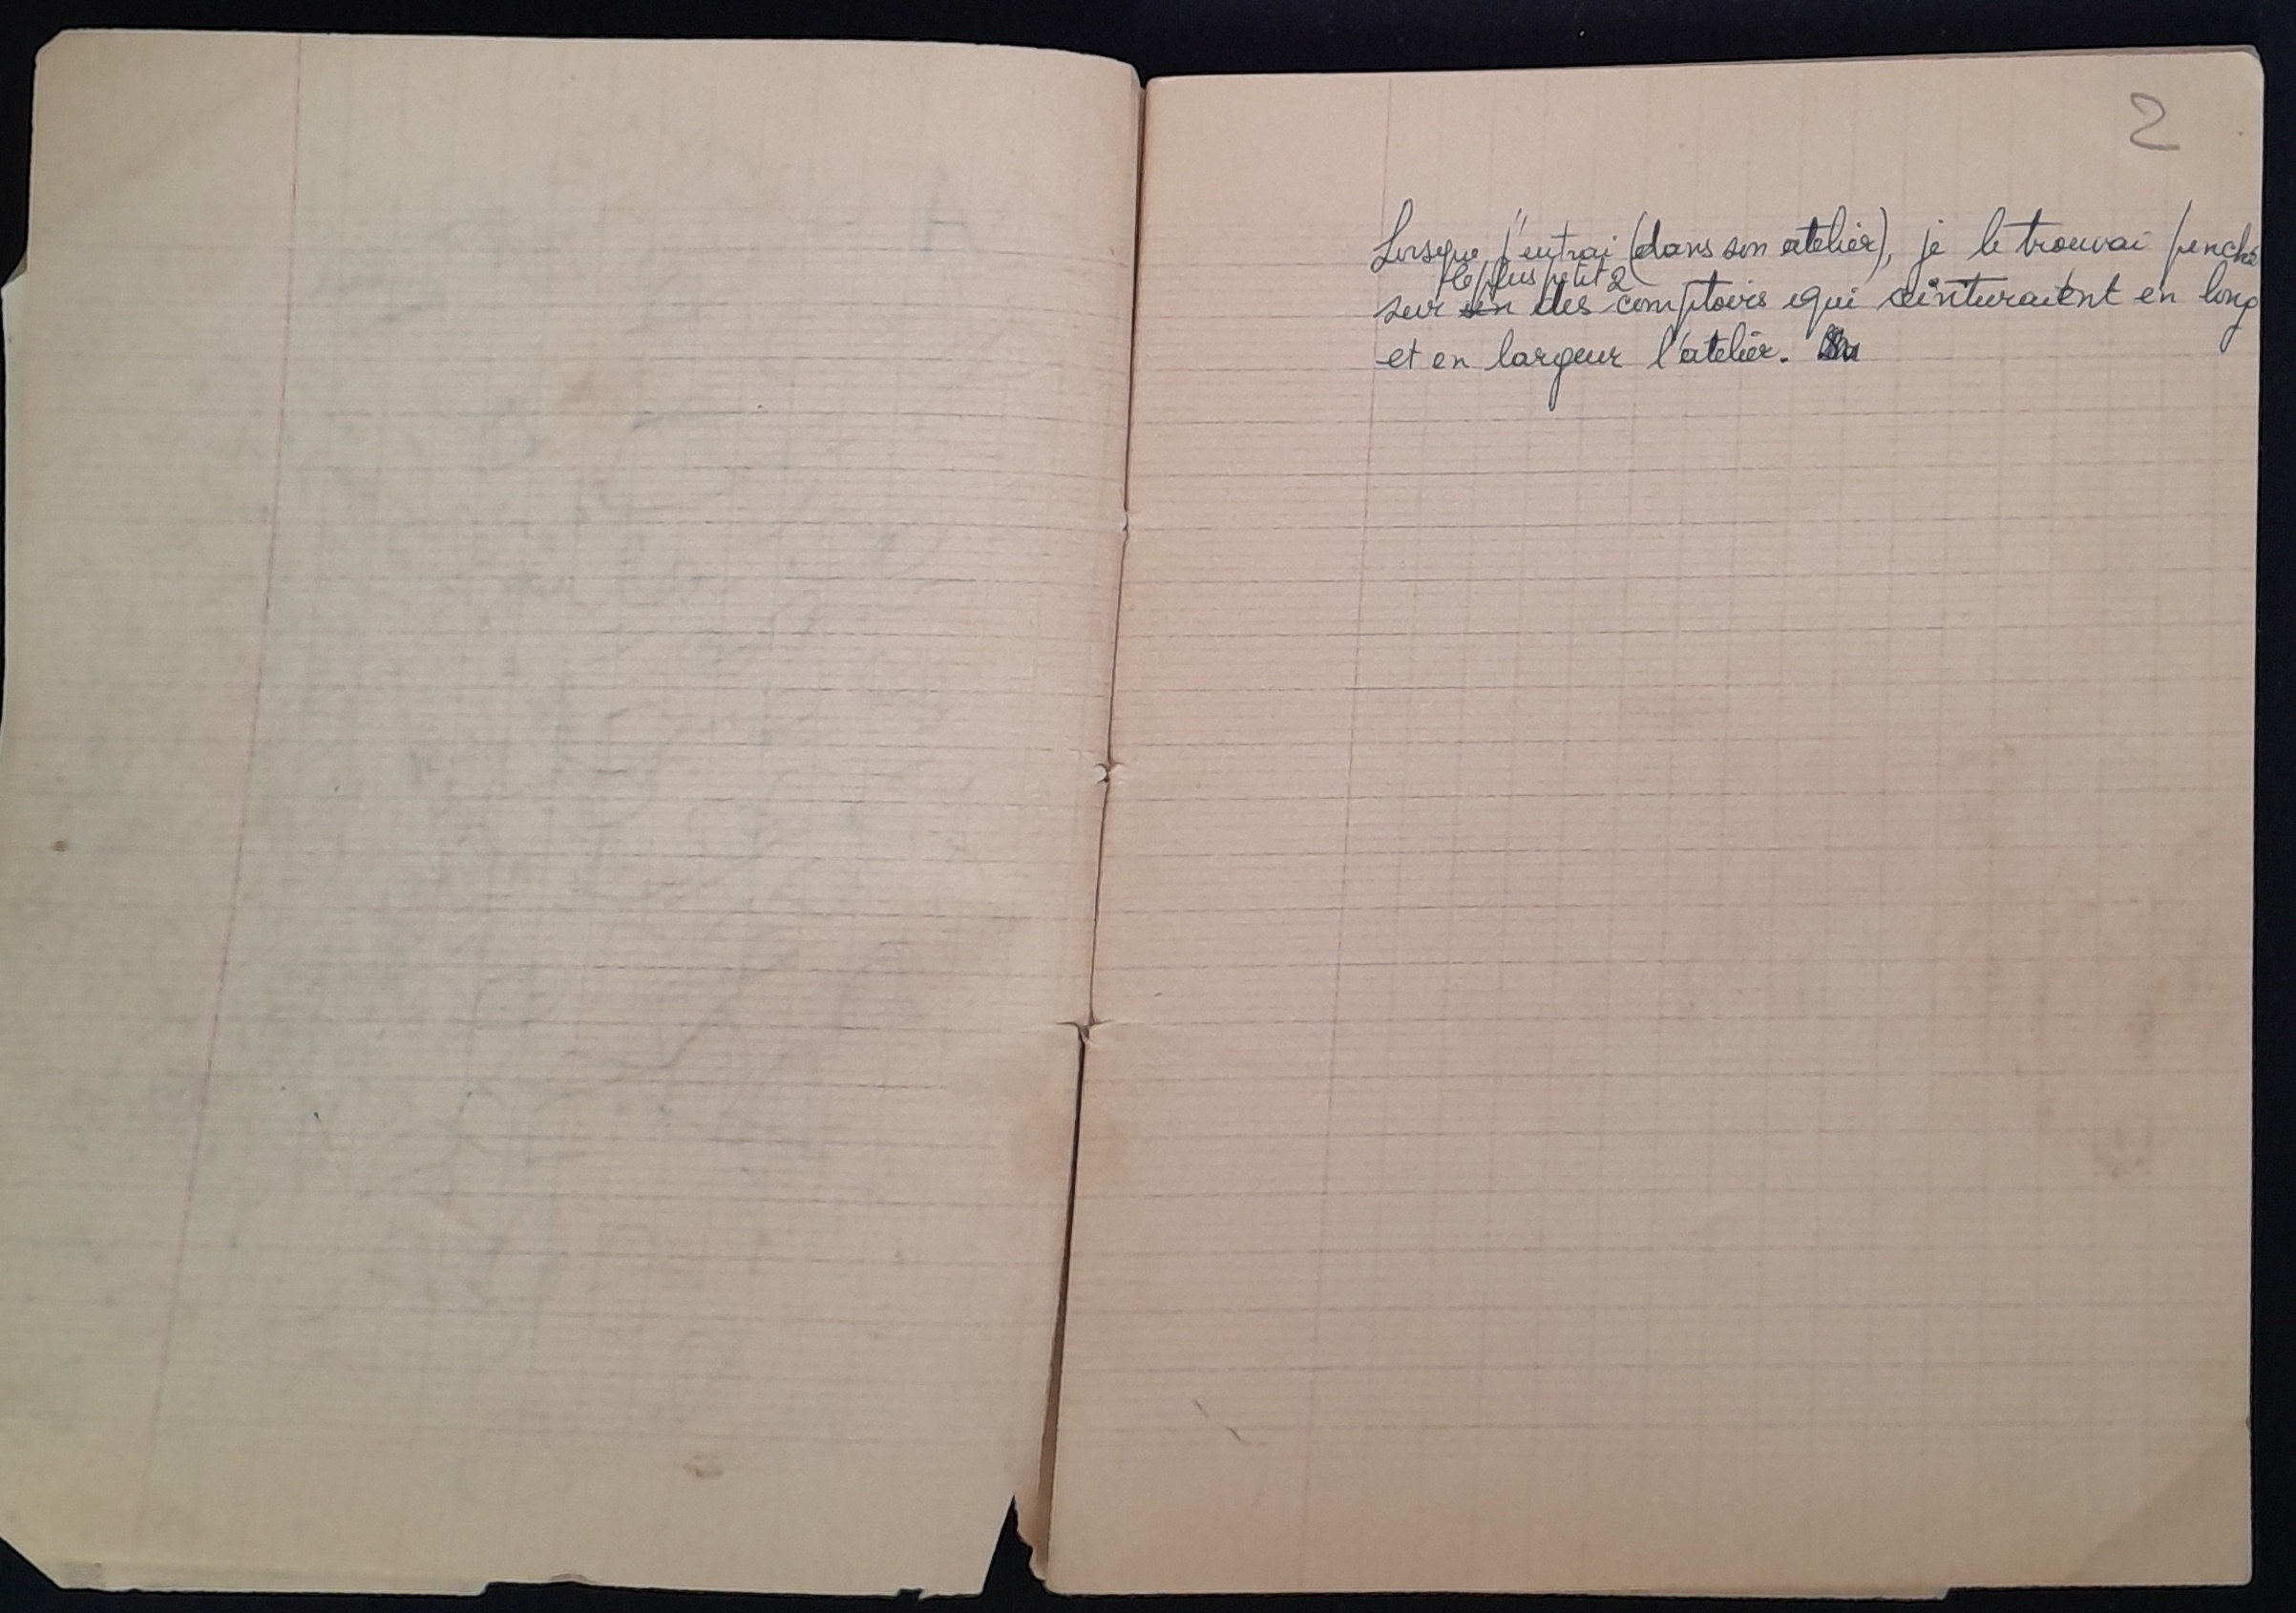 2
Lorsque j'entrai (dans son atelier), je le trouvai penché
le plus petit
sur un des comptoirs qui ceinturaient en long
et en largeur l'atelier.